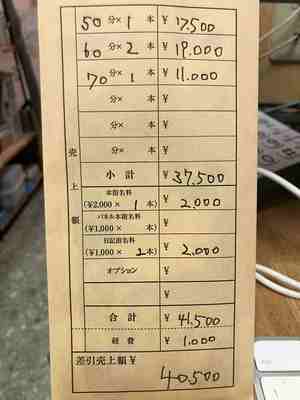 50分×1本 ¥17.500
60分×2本 ¥19.000
70分×1本 ¥11.000
分× 本 ¥
分× 本 ¥
分× 本 ¥
売上額
小計 ¥37,500
本指名料
(¥2,000× 1本) ¥2.000
パネル本指名料
(¥1,000× 本) ¥
日記指名料
(¥1,000× 2本) ¥2.000
オプション ¥
¥
合計 ¥41.500
経費 ¥1.000
差引売上額¥
40500